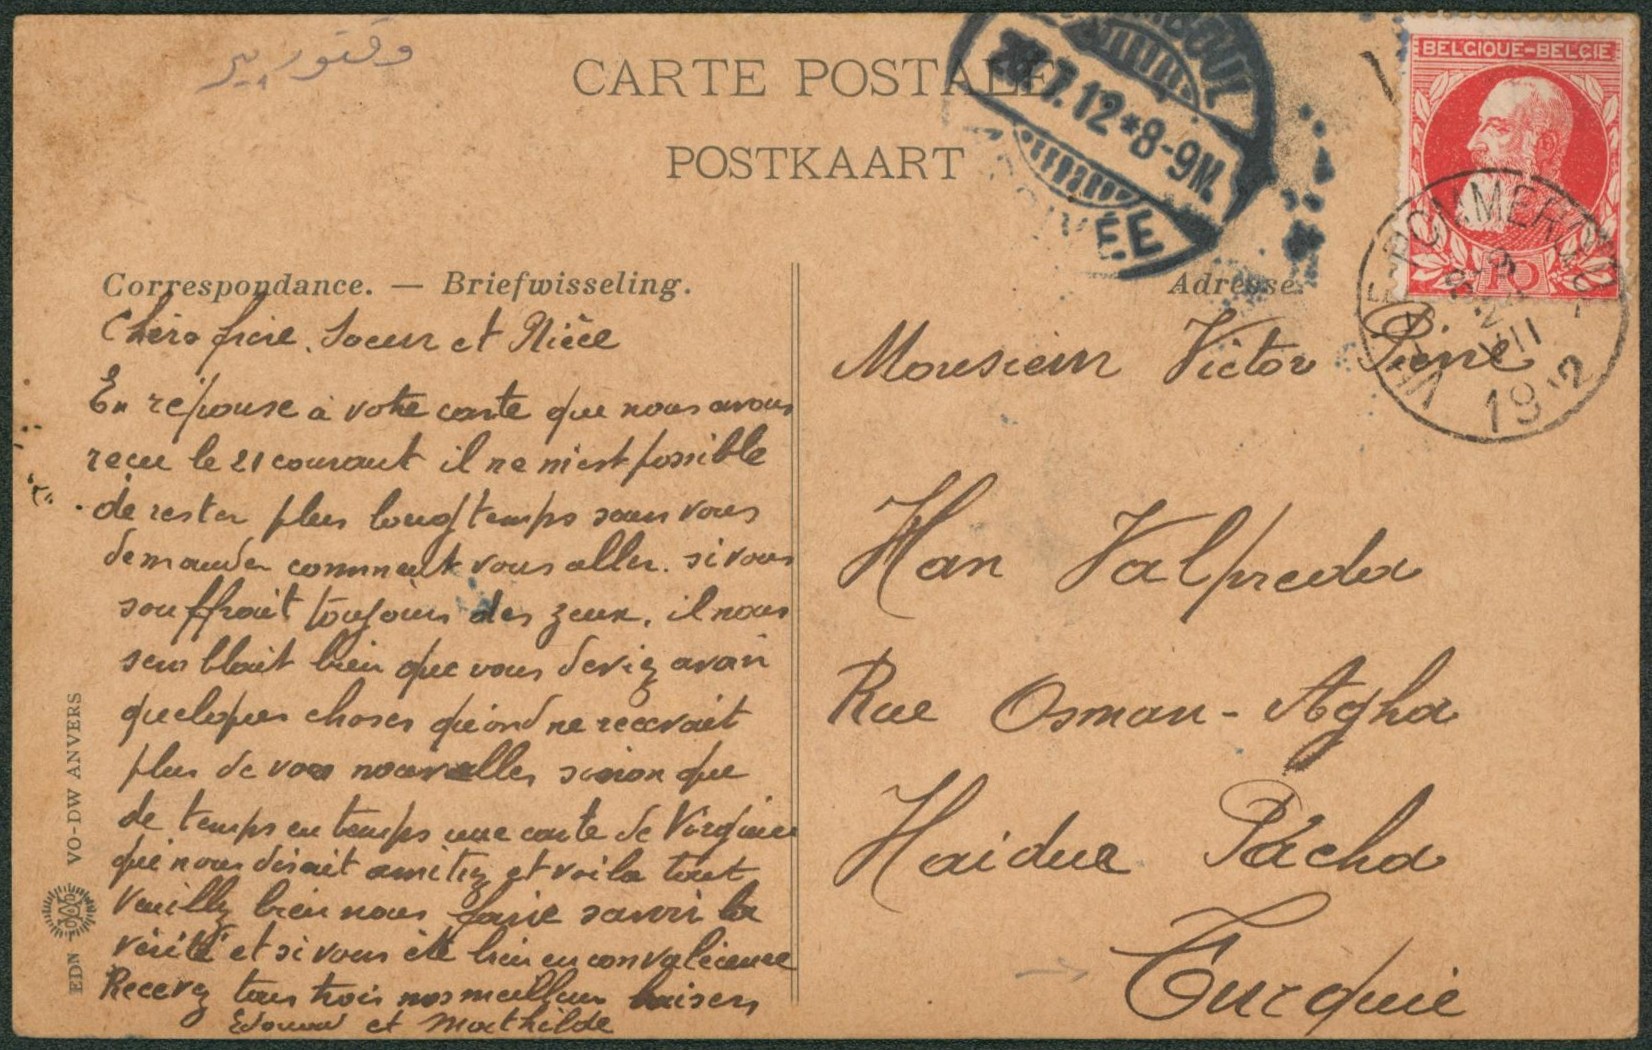 وقتور پیر
CARTE POSTALE
POSTKAART
28.7.12*8-9M.
BELGIQUE-BELGIE
10
POMMERŒUL
VILLE
VII
1912
Correspondance. — Briefwisseling.
Adresse.
Chèrs frère, Soeur et Nièce
En réponse à votre carte que nous avons
recue le 21 courant il ne m'est possible
de rester plus lougtemps sans vous
demander comment vous aller. si vous
souffrait toujours des zeux, il nous
semblait bien que vous deviez avoir
quelques choses qu'ond ne recevait
plus de vos nouvelles sinon que
de temps en temps une carte de Virginie
qui nous disait amitiez et voila tout
Veuillez bien nous faire savoir la
vérité et si vous été bien en convalécence
Recevez tous trois nos meilleurs baisers
Edouard et Mathilde
Monsieur Victor Pierre
Han Valpreda
Rue Osman-Agha
Haidue Pacha
Turquie
EDN VO-DW ANVERS